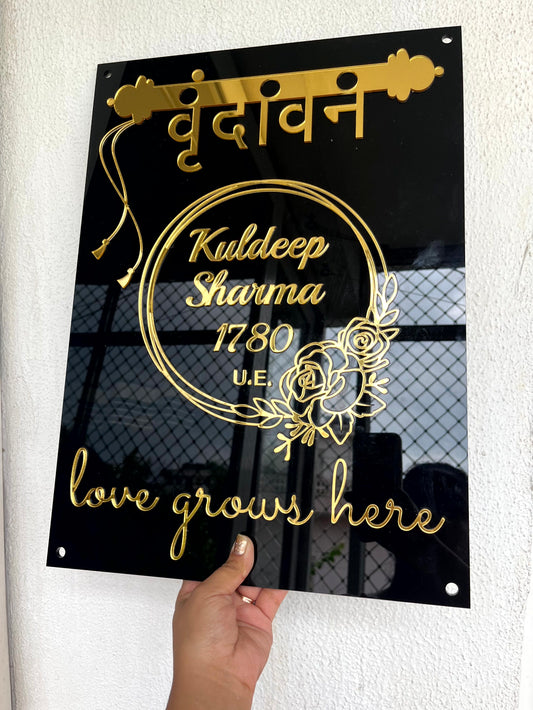 वृंदावन
Kuldeep
Sharma
1780
U.E.
love grows here